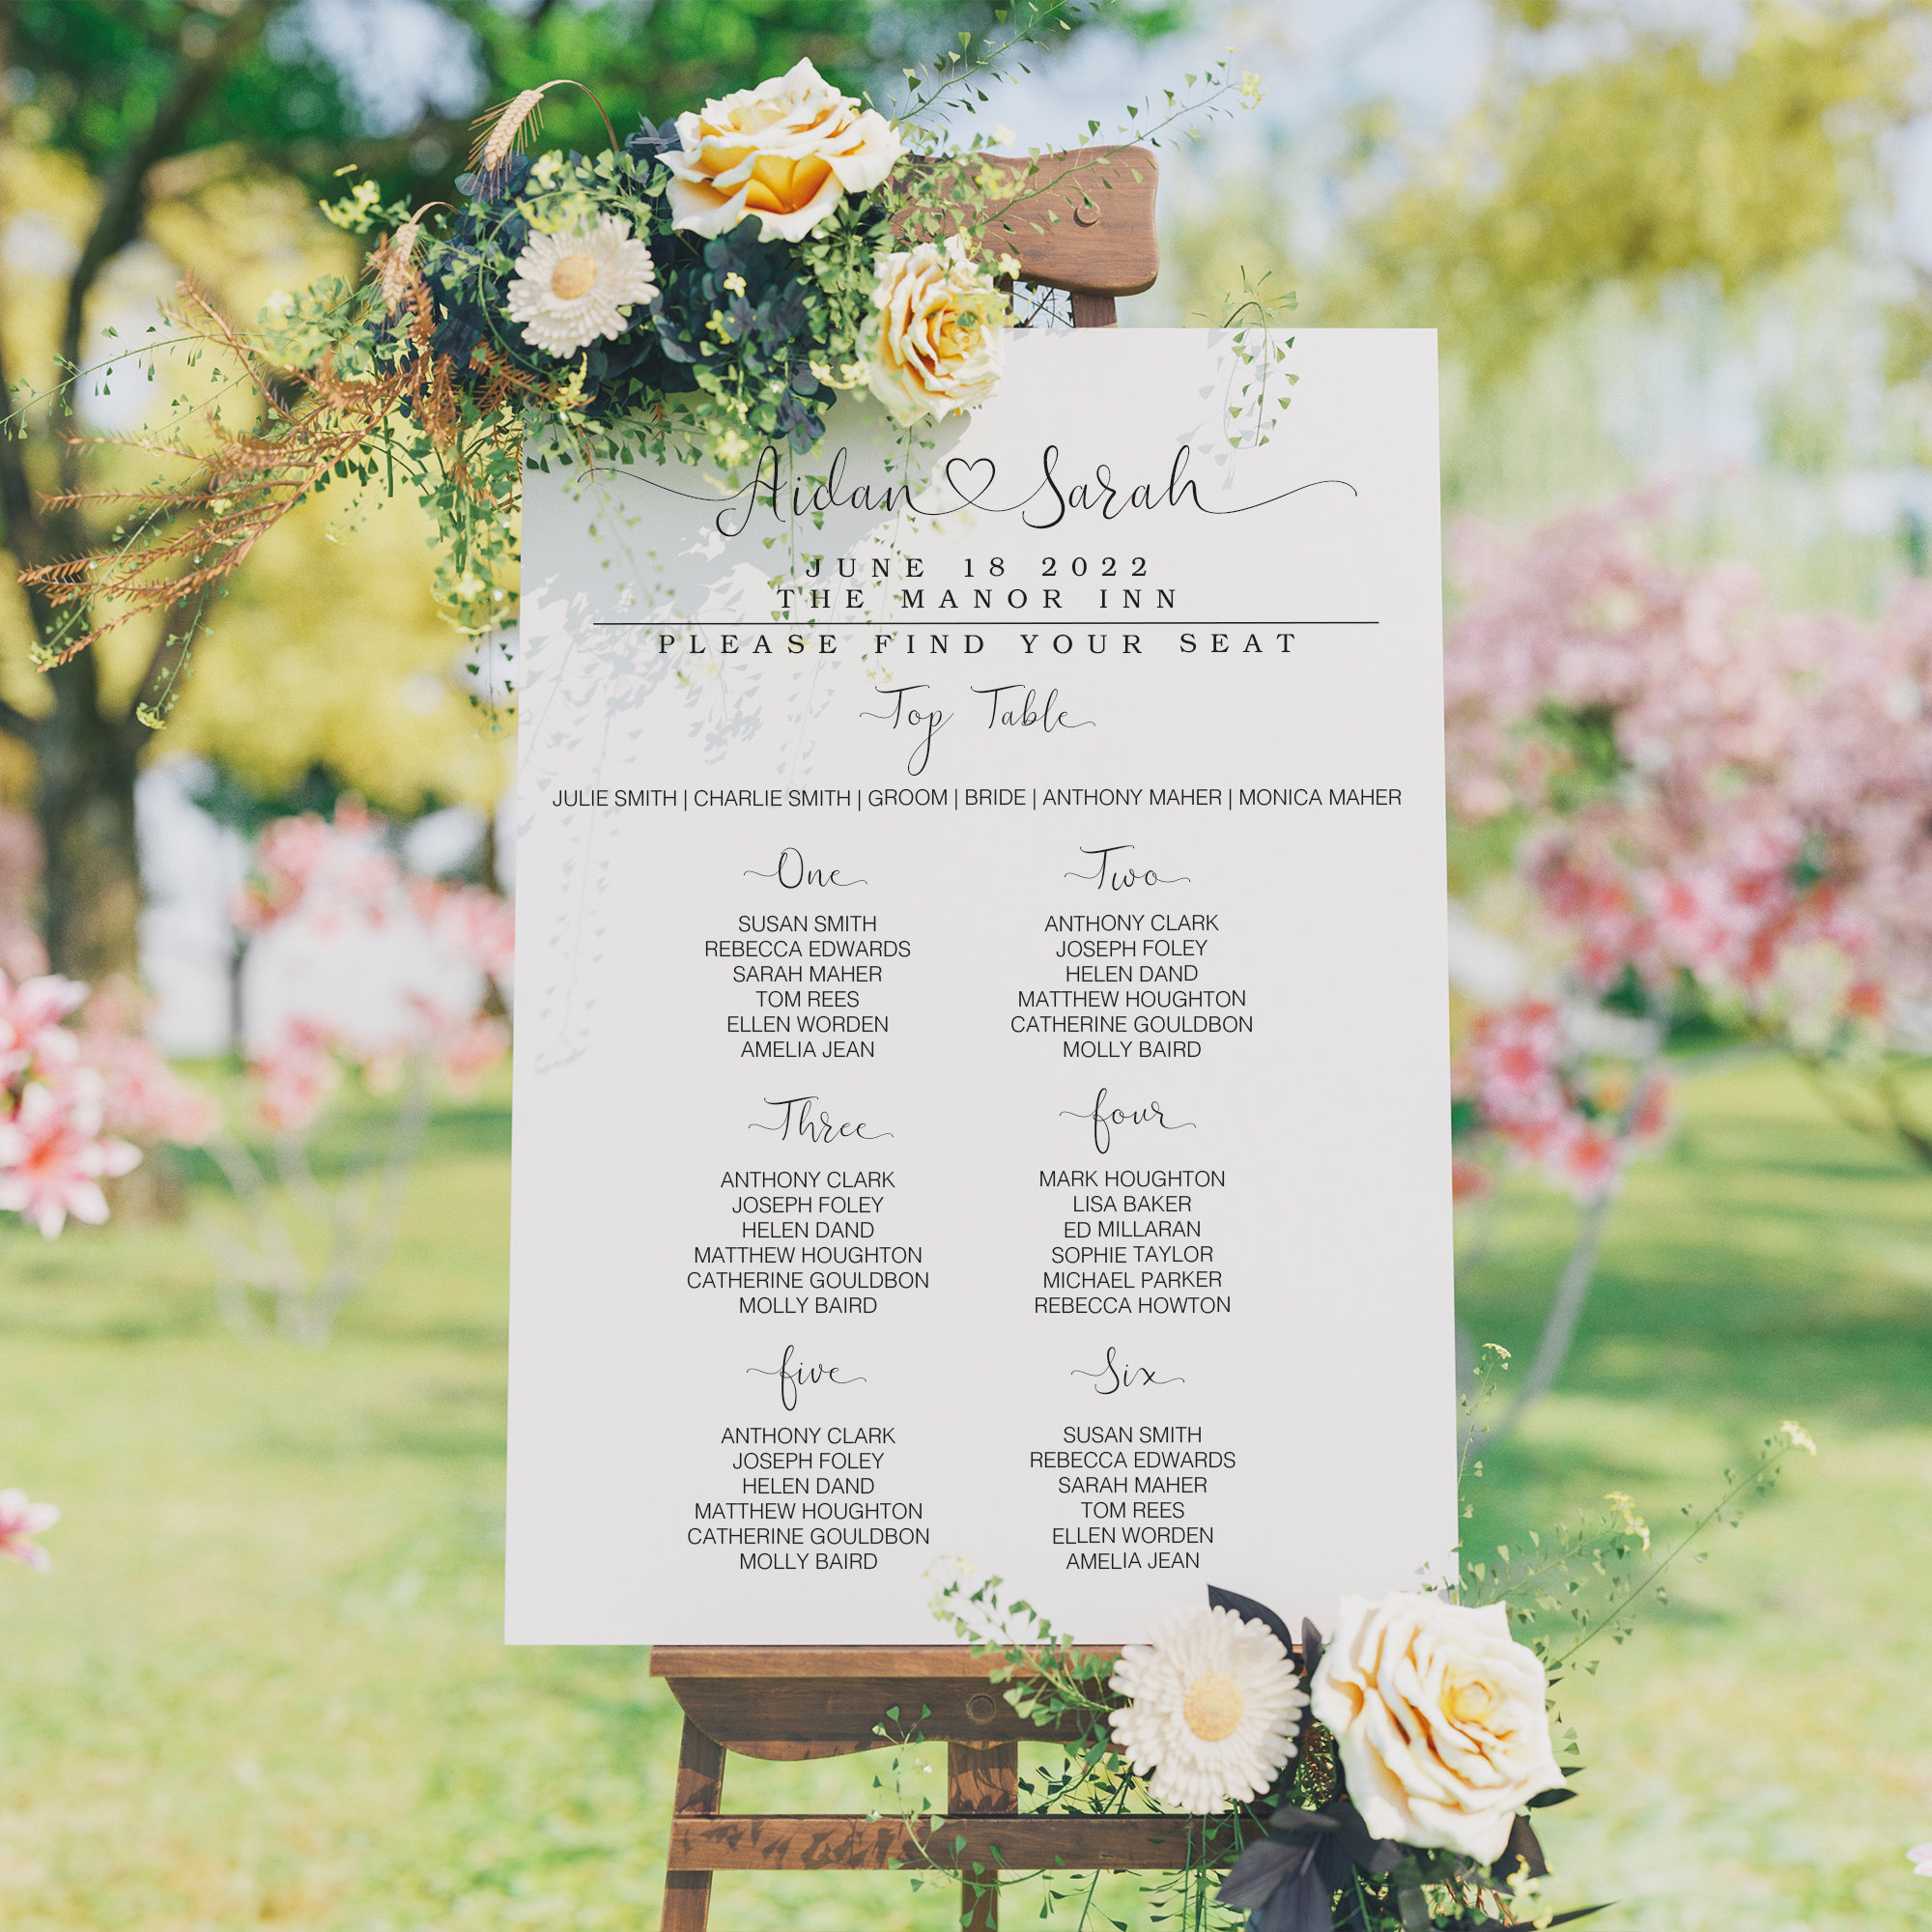 Aidan ♡ Sarah
JUNE 18 2022
THE MANOR INN
PLEASE FIND YOUR SEAT
Top Table
JULIE SMITH | CHARLIE SMITH | GROOM | BRIDE | ANTHONY MAHER | MONICA MAHER
One
SUSAN SMITH
REBECCA EDWARDS
SARAH MAHER
TOM REES
ELLEN WORDEN
AMELIA JEAN
Two
ANTHONY CLARK
JOSEPH FOLEY
HELEN DAND
MATTHEW HOUGHTON
CATHERINE GOULDBON
MOLLY BAIRD
Three
ANTHONY CLARK
JOSEPH FOLEY
HELEN DAND
MATTHEW HOUGHTON
CATHERINE GOULDBON
MOLLY BAIRD
four
MARK HOUGHTON
LISA BAKER
ED MILLARAN
SOPHIE TAYLOR
MICHAEL PARKER
REBECCA HOWTON
five
ANTHONY CLARK
JOSEPH FOLEY
HELEN DAND
MATTHEW HOUGHTON
CATHERINE GOULDBON
MOLLY BAIRD
Six
SUSAN SMITH
REBECCA EDWARDS
SARAH MAHER
TOM REES
ELLEN WORDEN
AMELIA JEAN